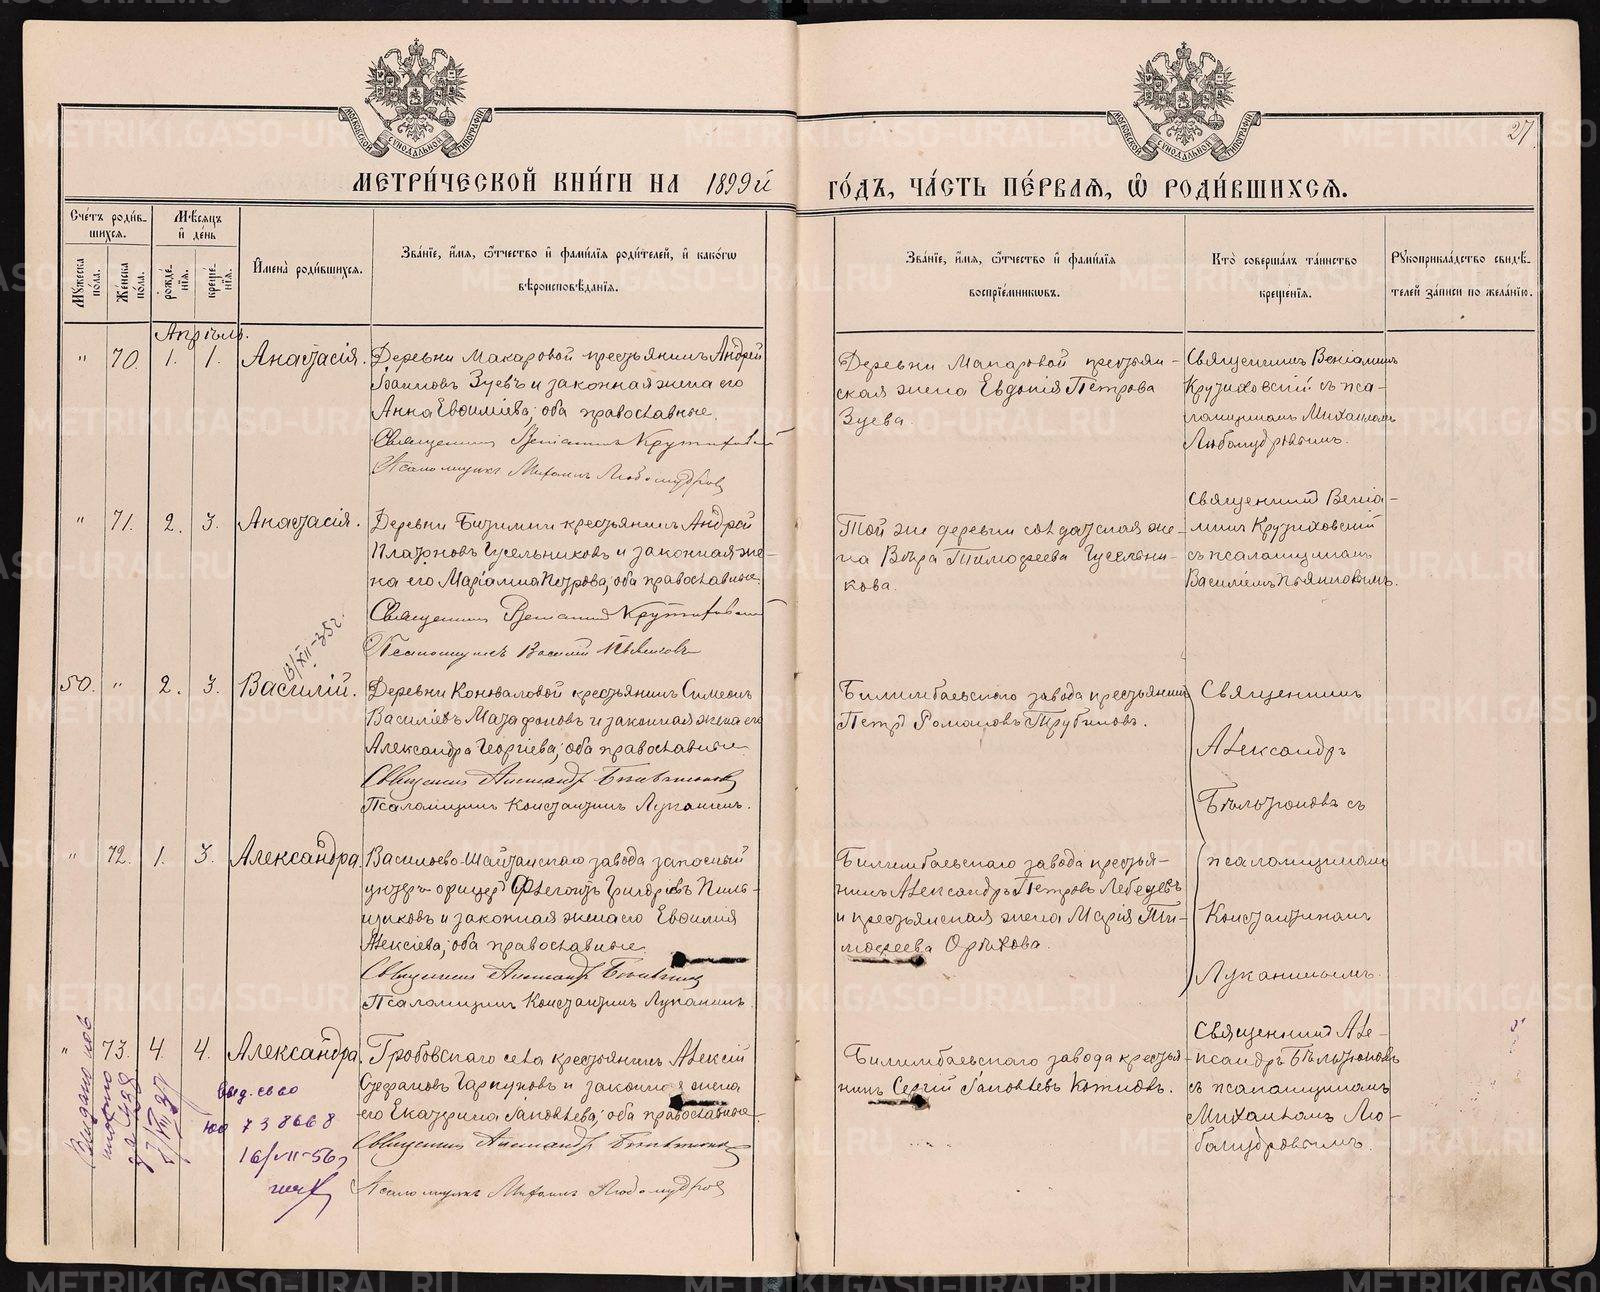 МОСКОВСКОЙ СѴНОДАЛЬНОЙ ТИПОГРАФІИ
МОСКОВСКОЙ СѴНОДАЛЬНОЙ ТИПОГРАФІИ
27
МЕТРИ́ЧЕСКОЙ КНИ́ГИ НА 1899й ГО́ДЪ, ЧА́СТЬ ПЕ́РВАѦ, Ѡ҆ РОДИ́ВШИХСѦ.
Сче́тъ роди́в-
шихсѧ.
Мѣ́сѧцъ
и҆ де́нь
Мꙋ́жеска по́ла.
Же́нска по́ла.
рожде́-
нїѧ.
креще́-
нїѧ.
И҆мена̀ роди́вшихсѧ.
Зва́нїе, и҆́мѧ, ѻ҆́тчество и҆ фами́лїѧ роди́телей, и҆ како́гѡ
вѣроисповѣ́данїѧ.
Зва́нїе, и҆́мѧ, ѻ҆́тчество и҆ фами́лїѧ
воспрїе́мникѡвъ.
Кто̀ соверша́лъ та́инство
креще́нїѧ.
Рꙋкоприкла́дство свидѣ́-
телей за́писи по жела́нїю.
Апрѣль.
" 70. 1. 1. Анастасія.
Деревни Макаровой крестьянинъ Андрей
Іоанновъ Зуевъ и законная жена его
Анна Евѳиміева; оба православные.
Священникъ Веніаминъ Крутиховскій
Псаломщикъ Михаилъ Любомудровъ
Деревни Макаровой крестьян-
ская жена Евдокія Петрова
Зуева.
Священникъ Веніаминъ
Крутиховскій съ пса-
ломщикомъ Михаиломъ
Любомудровымъ.
" 71. 2. 3. Анастасія.
Деревни Битимки крестьянинъ Андрей
Платоновъ Гусельниковъ и законная же-
на его Маріамна Петрова; оба православные.
Священникъ Веніаминъ Крутиховскій
Псаломщикъ Василій Пьянковъ
Той же деревни солдатская же-
на Вѣра Тимофеева Гусельни-
кова.
Священникъ Веніа-
минъ Крутиховскій
съ псаломщикомъ
Василіемъ Пьянковымъ.
13/XII-35г.
50. " 2. 3. Василій.
Деревни Коноваловой крестьянинъ Симеонъ
Василіевъ Матафоновъ и законная жена его
Александра Георгіева; оба православные
Священникъ Александръ Бѣльтюковъ
Псаломщикъ Константинъ Луканинъ.
Билимбаевскаго завода крестьянинъ
Петръ Романовъ Трубиновъ.
Священникъ
Александръ
Бѣльтюковъ съ
псаломщикомъ
Константиномъ
Луканинымъ.
" 72. 1. 3. Александра.
Васильево-Шайтанскаго завода запасный
унтеръ-офицеръ Флегонтъ Григорьевъ Пиль-
щиковъ и законная жена его Евѳимія
Алексіева; оба православные
Священникъ Александръ Бѣльтюковъ
Псаломщикъ Константинъ Луканинъ.
Билимбаевскаго завода крестья-
нинъ Александръ Петровъ Лебедевъ
и крестьянская жена Марія Ти-
мофеева Орѣхова.
" 73. 4. 4. Александра.
Гробовскаго села крестьянинъ Алексій
Стефановъ Гаркуновъ и законная жена
его Екатерина Іаковлева; оба православные
Священникъ Александръ Бѣльтюковъ
Псаломщикъ Михаилъ Любомудровъ
Билимбаевскаго завода крестья-
нинъ Сергій Іаковлевъ Кожновъ.
Священникъ Але-
ксандръ Бѣльтюковъ
съ псаломщикомъ
Михаиломъ Лю-
бомудровымъ.
выд. св во
ЮО 738668
16/VII-56г
METRIKI.GASO-URAL.RU